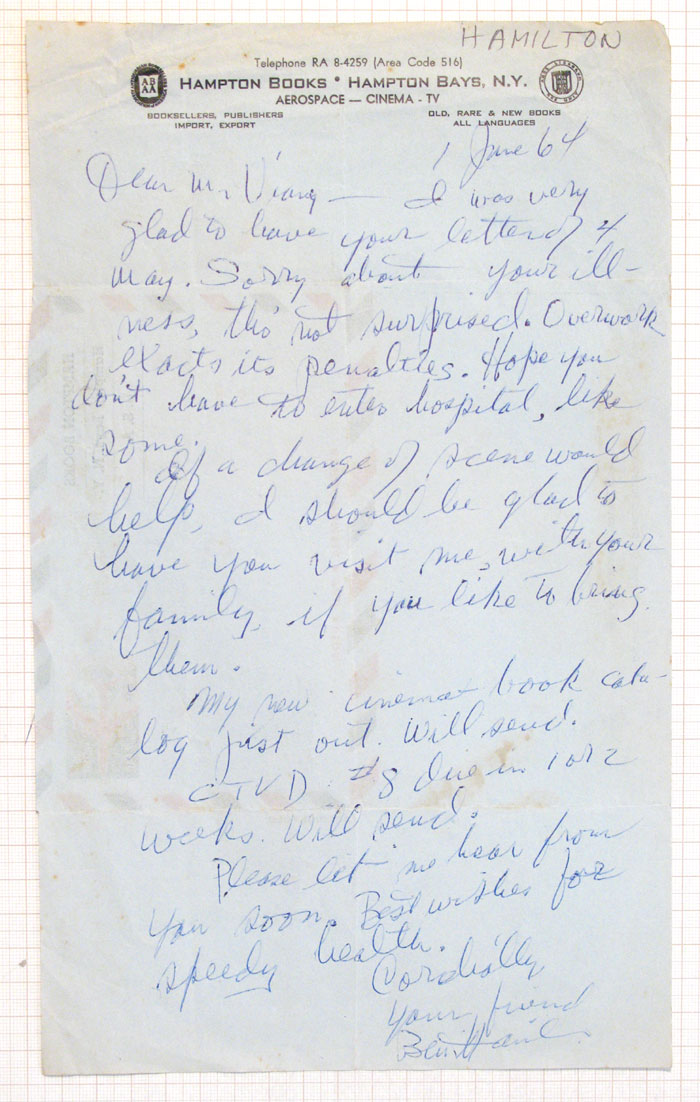 HAMILTON
Telephone RA 8-4259 (Area Code 516)
HAMPTON BOOKS • HAMPTON BAYS, N.Y.
AEROSPACE — CINEMA - TV
BOOKSELLERS, PUBLISHERS
IMPORT, EXPORT
OLD, RARE & NEW BOOKS
ALL LANGUAGES
AB
AA
1 June 64
Dear Mr — I was very
glad to have your letter of 4
May. Sorry about your ill-
ness, tho' not surprised. Overwork
exacts its penalties. Hope you
don't have to enter hospital, like
some.
If a change of scene would
help, I should be glad to
have you visit me, with your
family, if you like to bring
them.
My new cinema book cata-
log just out. Will send.
CTVD #8 due in 1 or 2
weeks. Will send.
Please let me hear from
you soon. Best wishes for
speedy health.
Cordially
Your friend
Ben